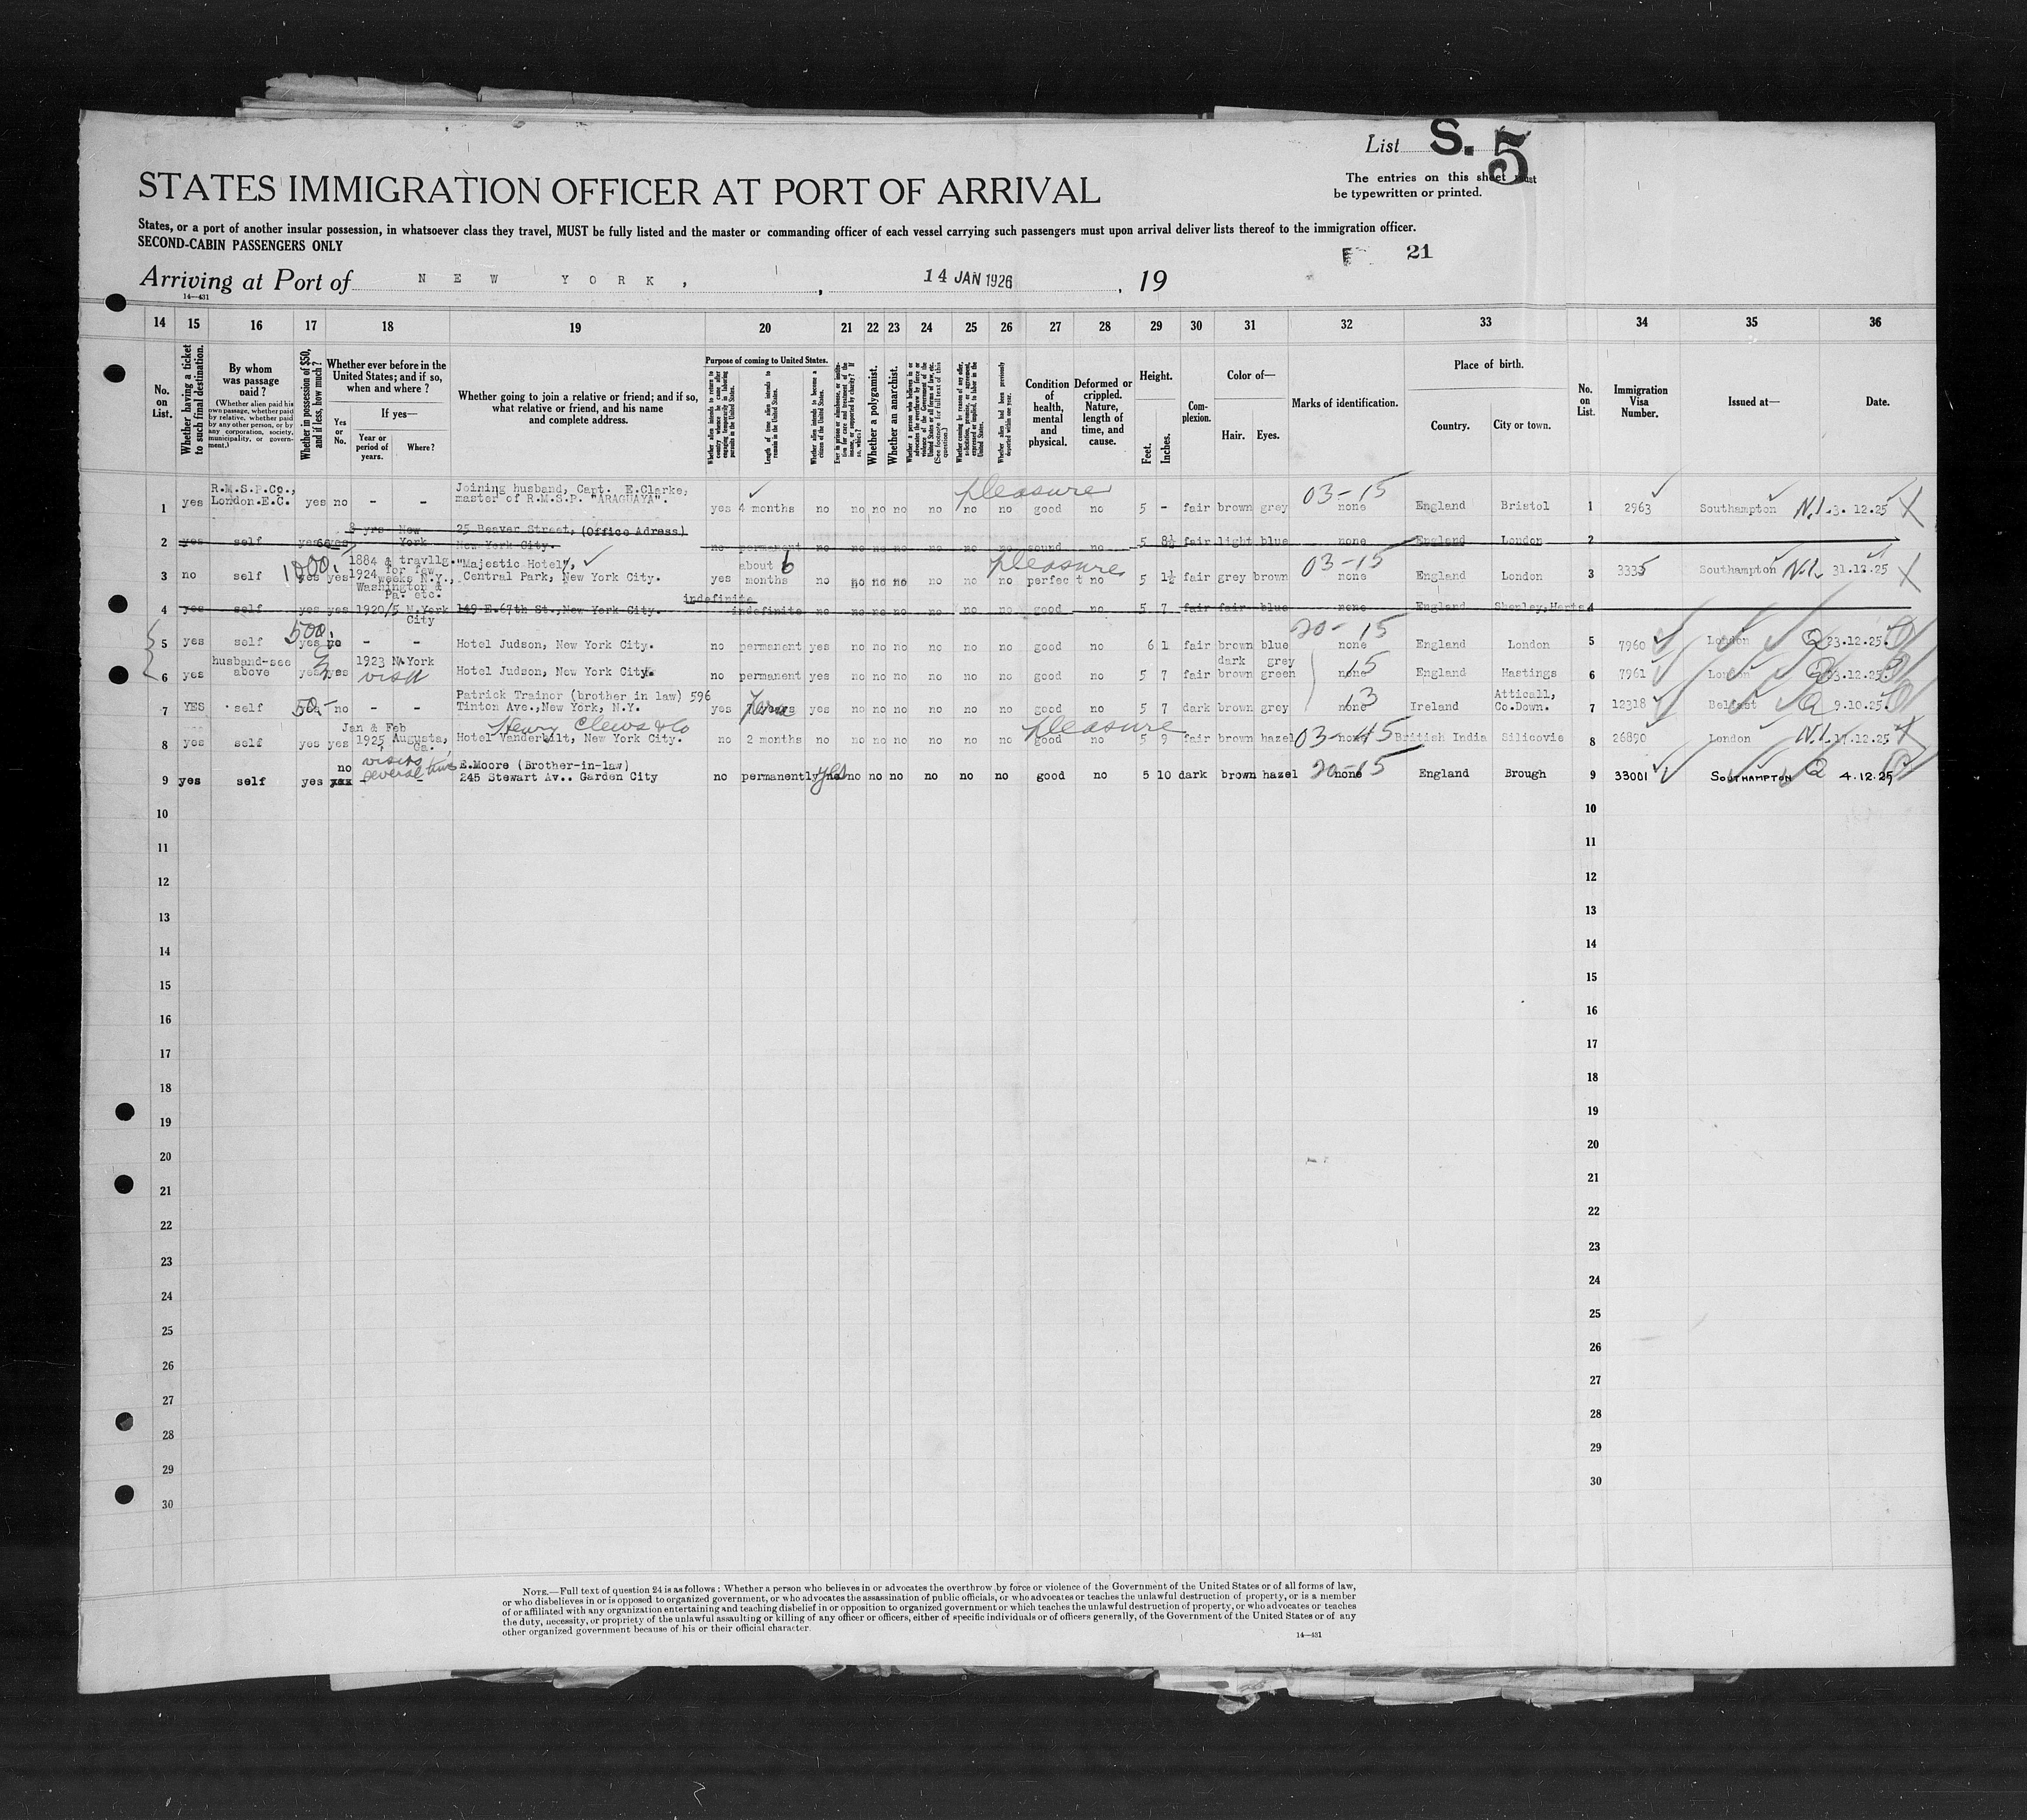 List S. 5
The entries on this sheet must
be typewritten or printed.
STATES IMMIGRATION OFFICER AT PORT OF ARRIVAL
States, or a port of another insular possession, in whatsoever class they travel, MUST be fully listed and the master or commanding officer of each vessel carrying such passengers must upon arrival deliver lists thereof to the immigration officer.
SECOND-CABIN PASSENGERS ONLY
21
Arriving at Port of NEW YORK, , 14 JAN 1926 , 19
14—431
14 15 16 17 18 19 20 21 22 23 24 25 26 27 28 29 30 31 32 33 34 35 36
No. on List.
Whether having a ticket to such final destination.
By whom was passage paid?
(Whether alien paid his own passage, whether paid by relative, whether paid by any other person, or by any corporation, society, municipality, or government.)
Whether in possession of $50, and if less, how much?
Whether ever before in the United States; and if so, when and where?
Yes or No.
If yes—
Year or period of years.
Where?
Whether going to join a relative or friend; and if so, what relative or friend, and his name and complete address.
Purpose of coming to United States.
Whether alien intends to return to country whence he came after engaging temporarily in laboring pursuits in the United States.
Length of time alien intends to remain in the United States.
Whether alien intends to become a citizen of the United States.
Whether a polygamist.
Whether an anarchist.
Whether alien had been previously deported within one year.
Condition of health, mental and physical.
Deformed or crippled. Nature, length of time, and cause.
Height.
Feet. Inches.
Complexion.
Color of—
Hair. Eyes.
Marks of identification.
Place of birth.
Country. City or town.
No. on List.
Immigration Visa Number.
Issued at—
Date.
1 yes R.M.S.P.Co., London.E.C. yes no - - Joining husband, Capt. E.Clarke, master of R.M.S.P. "ARAGUAYA". yes 4 months no no no no no no no good no 5 - fair brown grey none England Bristol 1 2963 Southampton N.I. 3.12.25
pleasure 03-15
2 yes self yes yes 8 yrs New York 25 Beaver Street, (Office Adress) New York City. no permanent no no no no no no no sound no 5 8½ fair light blue none England London 2
3 no self 1000 yes yes 1884 & 1924 travllg. for few weeks N.Y., Washington & Pa. etc. "Majestic Hotel", Central Park, New York City. yes about 6 months no no no no no no no perfect no 5 1½ fair grey brown none England London 3 3335 Southampton N.I. 31.12.25
pleasure 03-15
4 yes self yes yes 1920/5 N.York City 149 E.67th St., New York City. indefinite indefinite no no no no no no no good no 5 7 fair fair blue none England Shenley, Herts 4
5 yes self 500 yes no - - Hotel Judson, New York City. no permanent yes no no no no no no good no 6 1 fair brown blue none England London 5 7960 London Q 23.12.25
20-15
6 yes husband-see above yes yes 1923 N.York visit Hotel Judson, New York City. no permanent yes no no no no no no good no 5 7 fair dark brown grey green none England Hastings 6 7961 London 23.12.25
15
7 YES self 50 no - - Patrick Trainor (brother in law) 596 Tinton Ave., New York, N.Y. yes yes no no no no no no good no 5 7 dark brown grey none Ireland Atticall, Co.Down. 7 12318 Belfast Q 9.10.25
13
8 yes self yes yes Jan & Feb 1925 Augusta, Ga. Henry Clews & Co Hotel Vanderbilt, New York City. no 2 months no no no no no no no good no 5 9 fair brown hazel none British India Silicovie 8 26890 London N.I. 17.12.25
pleasure 03-15
9 yes self yes no visits several times E.Moore (Brother-in-law) 245 Stewart Av.. Garden City no permanently yes no no no no no no good no 5 10 dark brown hazel none England Brough 9 33001 SOUTHAMPTON Q 4.12.25
20-15
10 10
11 11
12 12
13 13
14 14
15 15
16 16
17 17
18 18
19 19
20 20
21 21
22 22
23 23
24 24
25 25
26 26
27 27
28 28
29 29
30 30
NOTE.—Full text of question 24 is as follows: Whether a person who believes in or advocates the overthrow by force or violence of the Government of the United States or of all forms of law,
or who disbelieves in or is opposed to organized government, or who advocates the assassination of public officials, or who advocates or teaches the unlawful destruction of property, or is a member
of or affiliated with any organization entertaining and teaching disbelief in or opposition to organized government or which teaches the unlawful destruction of property, or who advocates or teaches
the duty, necessity, or propriety of the unlawful assaulting or killing of any officer or officers, either of specific individuals or of officers generally, of the Government of the United States or of any
other organized government because of his or their official character.
14—431